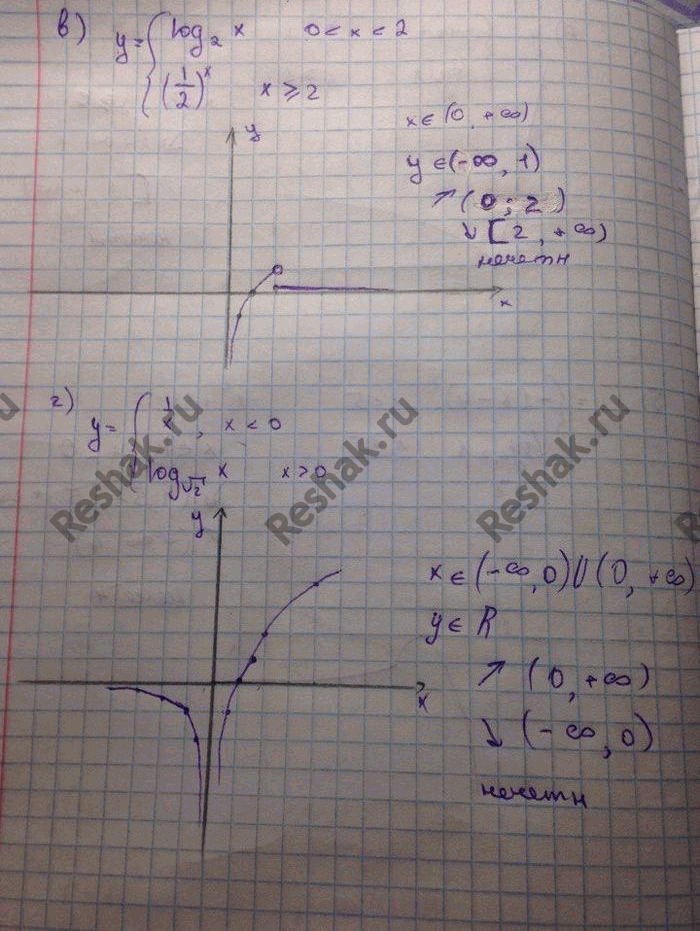 в) y = { log₂ x 0 < x < 2
(1/2)ˣ x ⩾ 2
x ∈ (0, +∞)
y
y ∈ (-∞, 1)
↗ (0; 2)
↘ [2, +∞)
нечетн
x
г) y = { 1/x, x < 0
log√2 x x > 0
Reshak.ru
Reshak.ru
Reshak.ru
y
x ∈ (-∞, 0) U (0, +∞)
y ∈ R
↗ (0, +∞)
x
↘ (-∞, 0)
нечетн